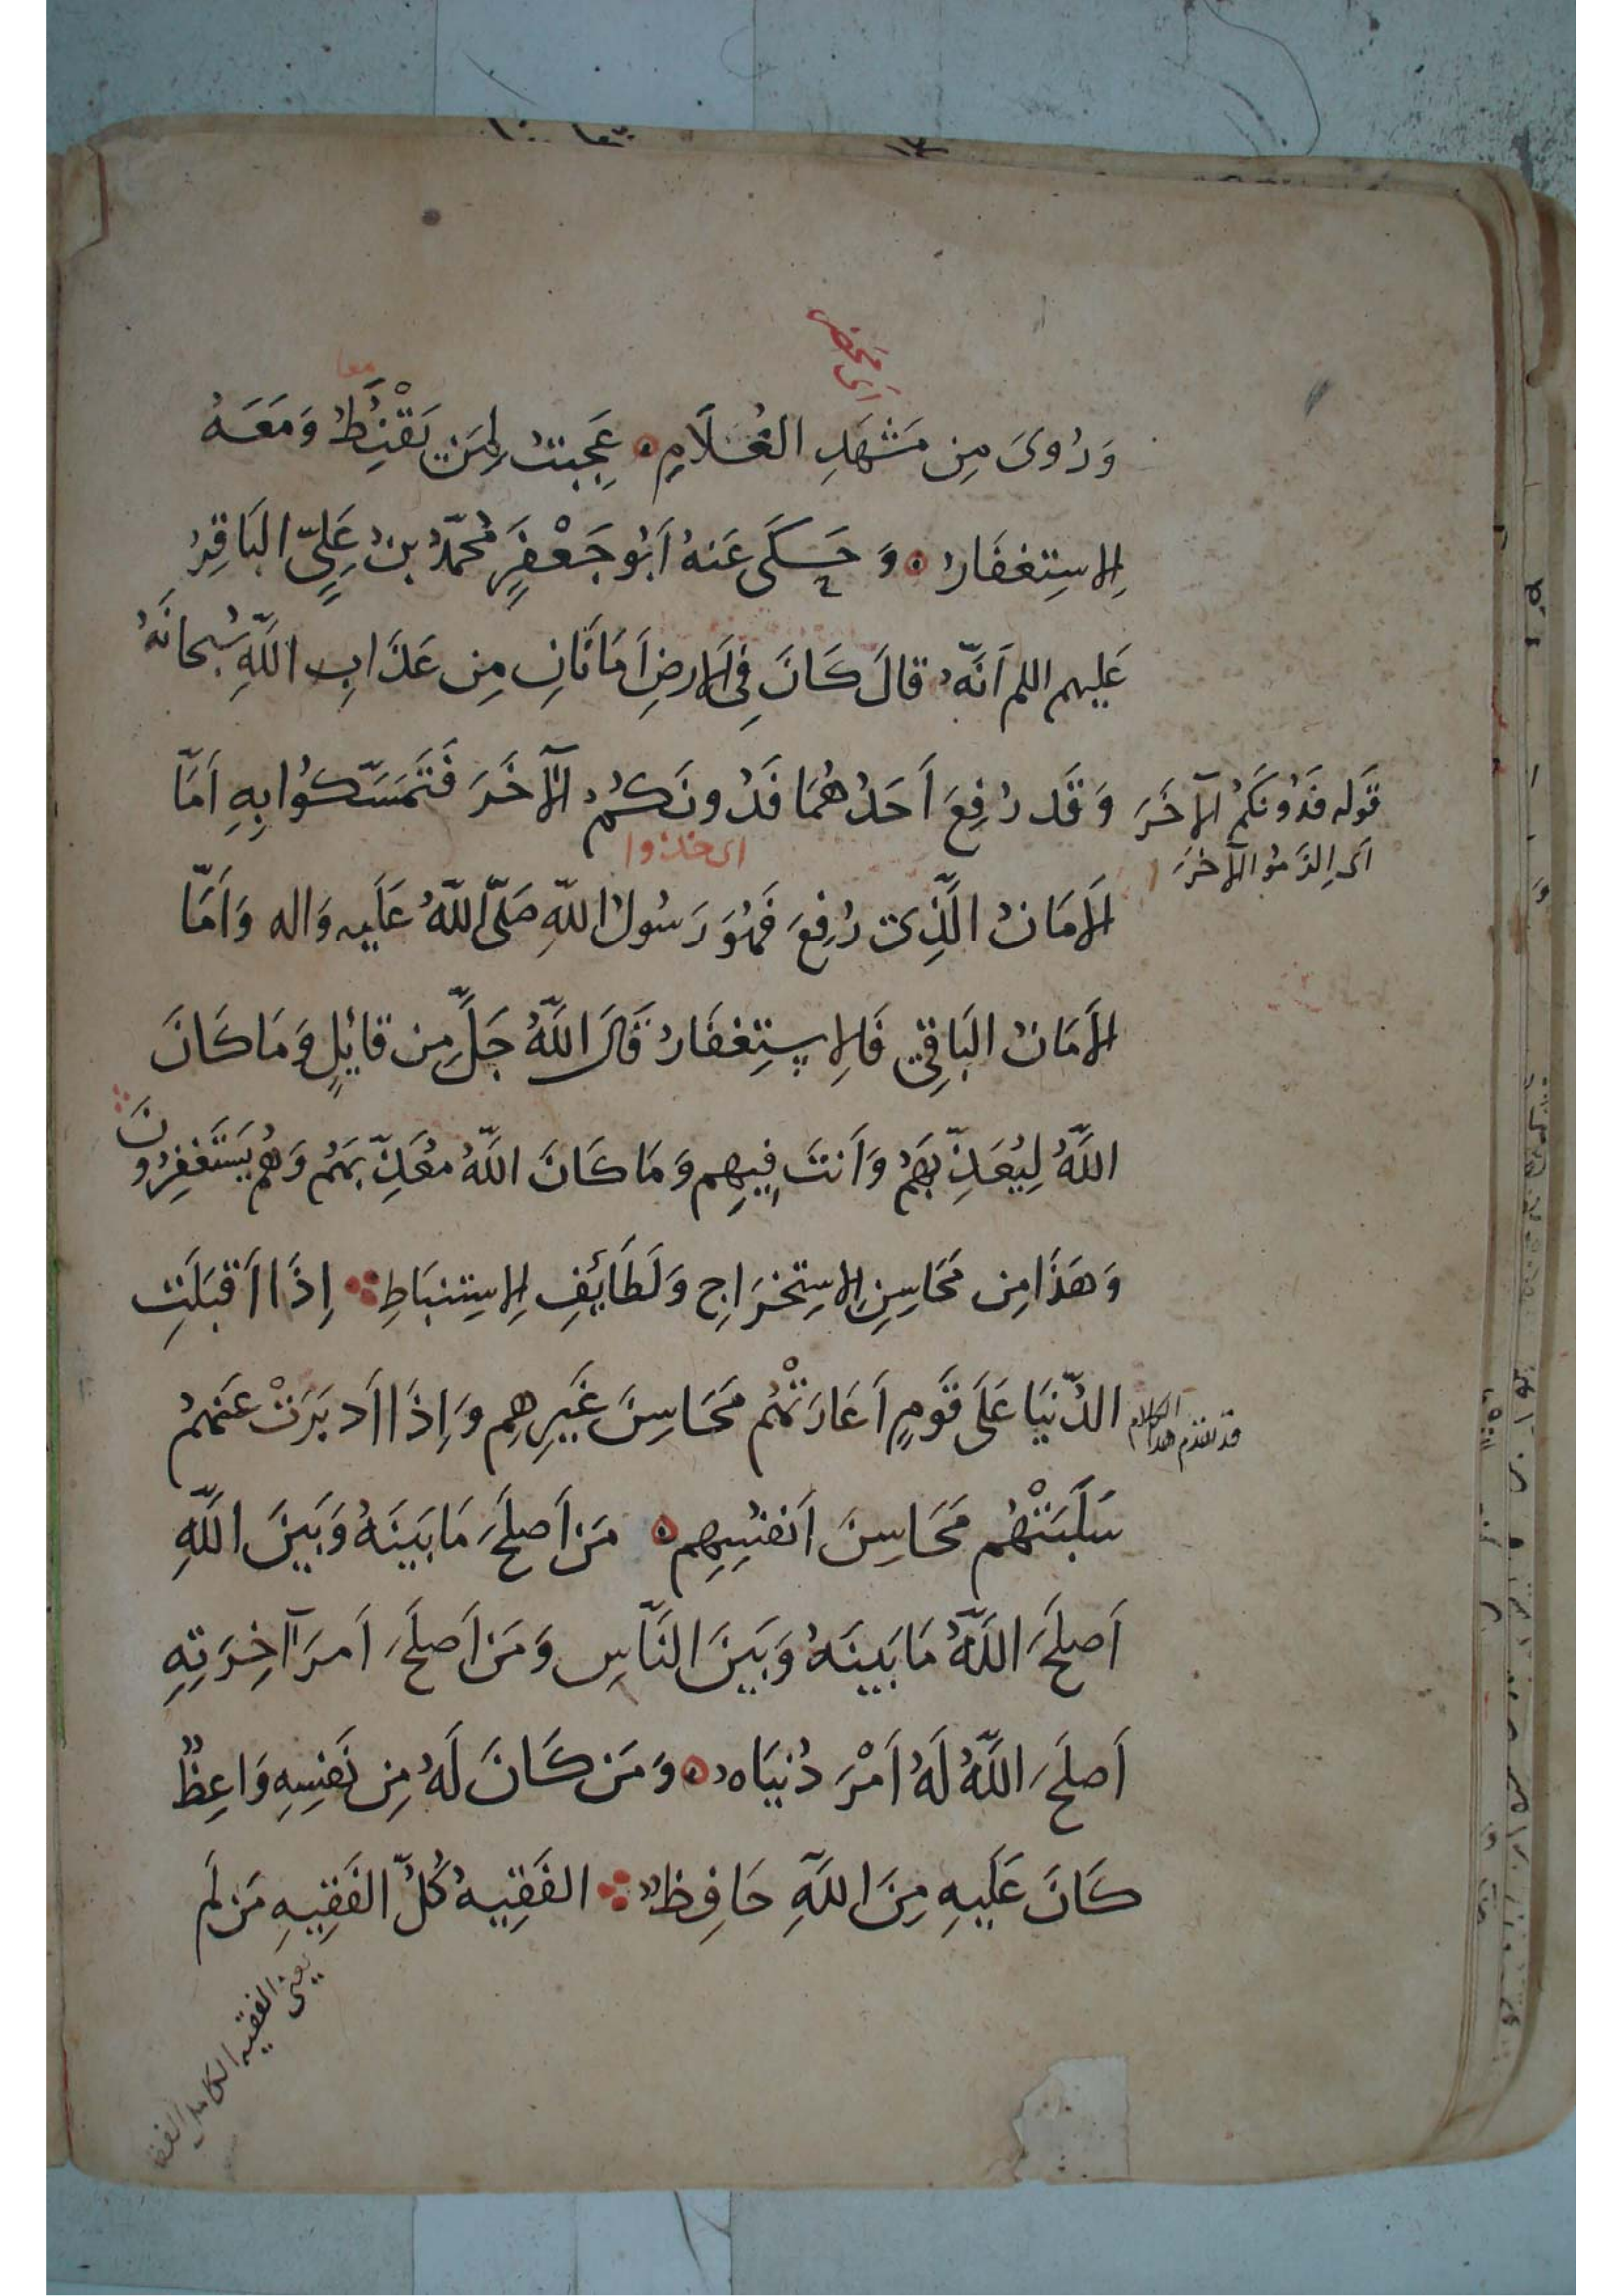 اى محضر
معا
وَرُوِىَ مِن مَشهَدِ الغُلَامِ ۞ عَجِبتُ لِمَن يَقْنَِطُ وَمَعَهُ
الِاستِغفَارُ ۞ وَحَكَى عَنهُ اَبُو جَعْفَرٍ مُحَمَّدُ بنُ عَلِىٍّ البَاقِرُ
عَلَيهِم اللم اَنَّهُ قالَ كَانَ فِى الاَرضِ اَمَانَانِ مِن عَذَابِ اللَّهِ سُبحانَهُ
وَقَد رُفِعَ اَحَدُهُمَا فَدُونَكُمُ الآخَرَ فَتَمَسَّكُوا بِهِ اَمَّا
اى خذوا
قَوله فَدُونَكُمُ الآخَرَ
اى اِلزَمُوا الآخَرَ
الاَمَانُ الَّذِى رُفِعَ فَهُوَ رَسُولُ اللهِ صَلَّى اللهُ عَلَيهِ وَاله وَاَمَّا
الاَمَانُ البَاقِى فَالِاستِغفَارُ قَالَ اللَّهُ جَلَّ مِن قائِلٍ وَمَا كَانَ
اللَّهُ لِيُعَذِّبَهُم وَاَنتَ فِيهِم وَمَا كَانَ اللَّهُ مُعَذِّبَهُم وَهُم يَستَغفِرُونَ
وَهَذَا مِن مَحَاسِنِ الِاستِخرَاجِ وَلَطَائِفِ الِاستِنبَاطِ ؞ اِذَا اَقبَلَتِ
الدُّنيَا عَلَى قَومٍ اَعَارَتْهُم مَحَاسِنَ غَيرِهِم وَاِذَا اَدبَرَتْ عَنهُمُ
قد تقدم هذا الكلام
سَلَبَتْهُم مَحَاسِنَ اَنفُسِهِم ۞ مَن اَصلَحَ مَا بَينَهُ وَبَينَ اللَّهِ
اَصلَحَ اللَّهُ مَا بَينَهُ وَبَينَ النَّاسِ وَمَن اَصلَحَ اَمرَ آخِرَتِهِ
اَصلَحَ اللَّهُ لَهُ اَمْرَ دُنيَاهُ ۞ وَمَن كَانَ لَهُ مِن نَفسِهِ وَاعِظٌ
كَانَ عَلَيهِ مِنَ اللَّهِ حَافِظٌ ؞ الفَقِيهُ كُلُّ الفَقِيهِ مَن لَم
يعنى الفقيه الكامل